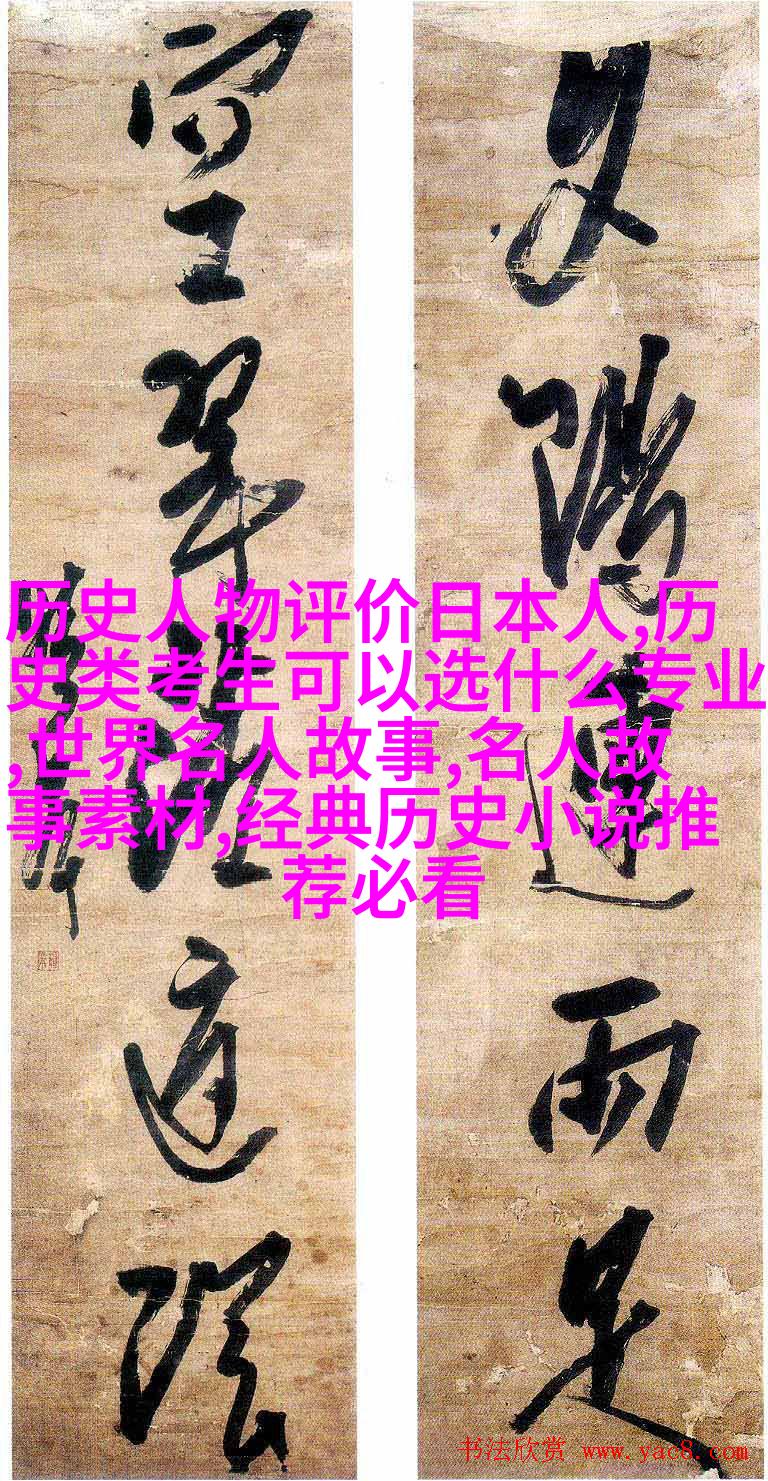 夕陽連雨足
空翠落庭陰
历史人物评价日本人,历
史类考生可以选什么专业
,世界名人故事,名人故
事素材,经典历史小说推
荐必看
书法欣赏 www.yac8.com